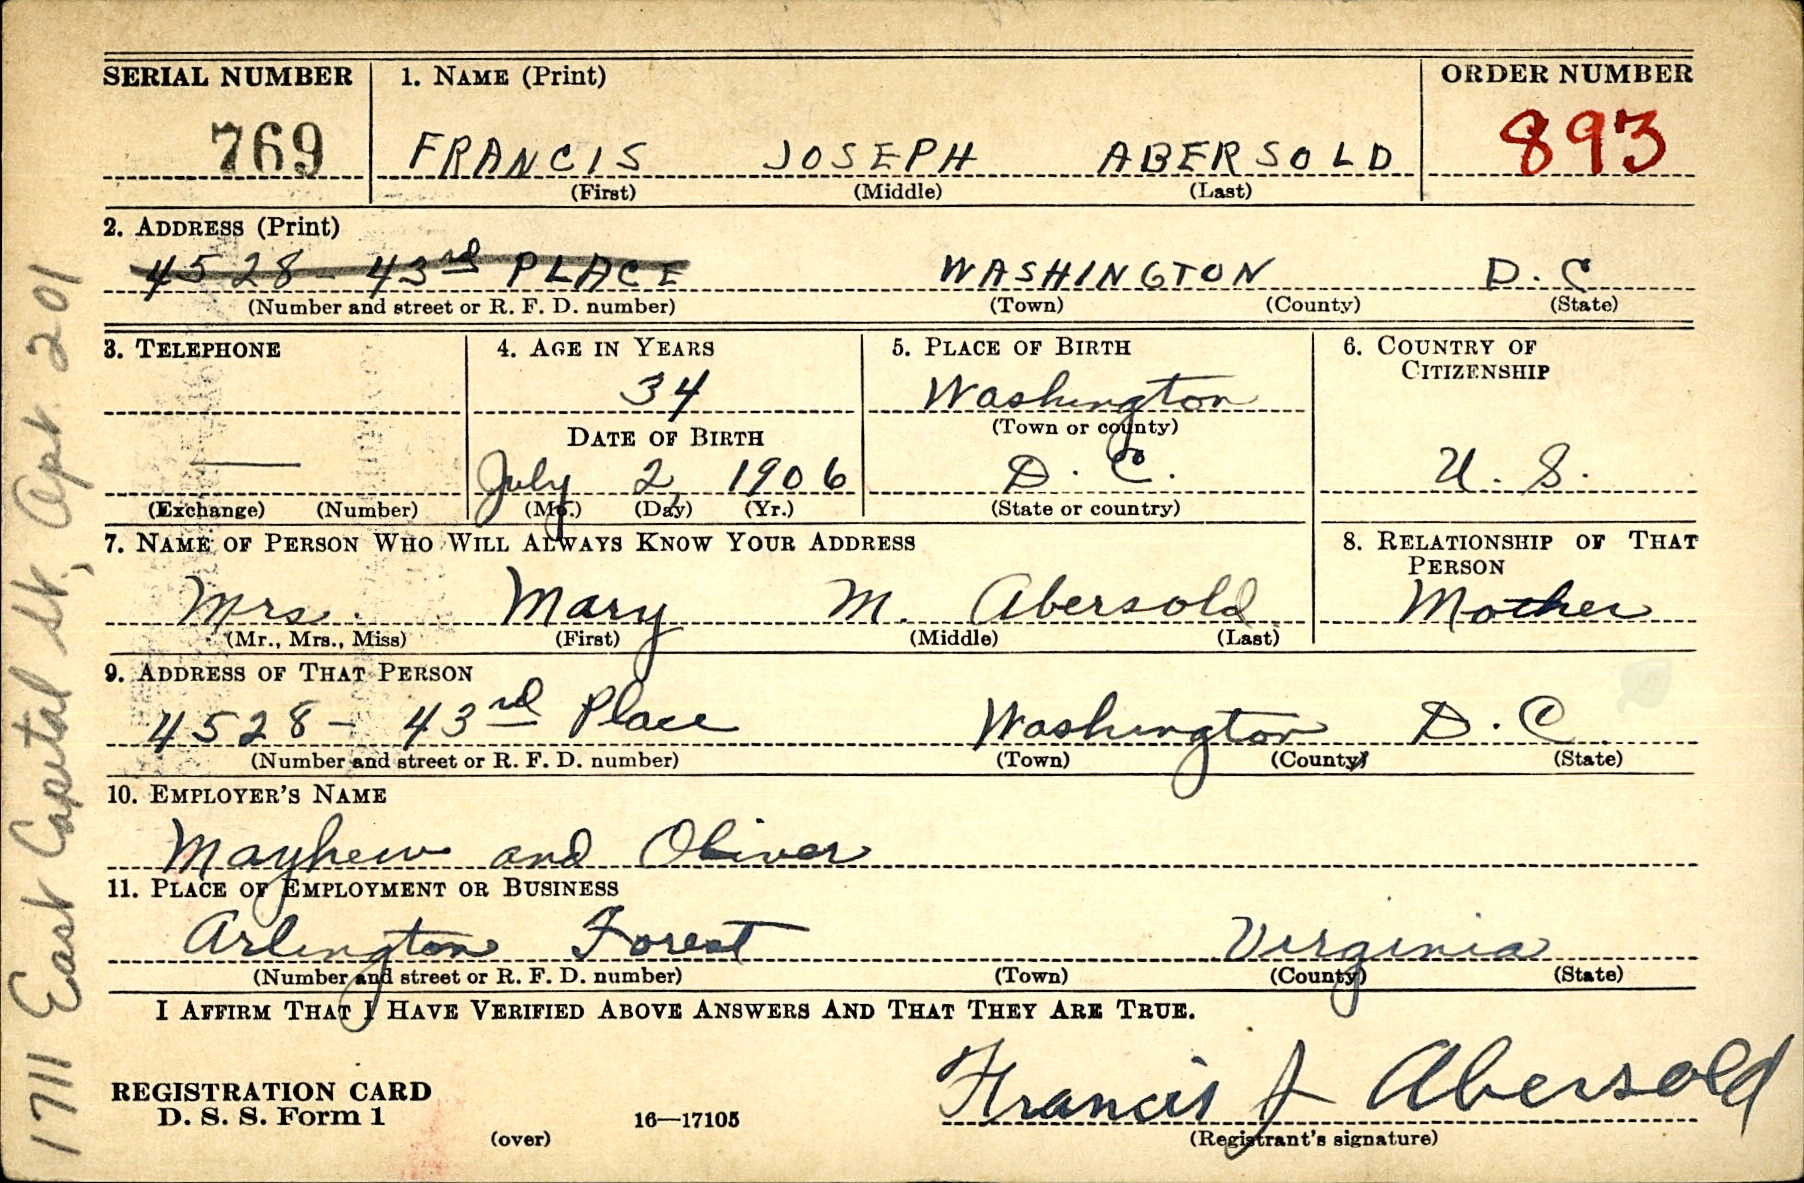 SERIAL NUMBER 1. NAME (Print) ORDER NUMBER
769 FRANCIS JOSEPH ABERSOLD 893
(First) (Middle) (Last)
2. ADDRESS (Print)
4528 - 43rd PLACE WASHINGTON D. C
(Number and street or R. F. D. number) (Town) (County) (State)
3. TELEPHONE 4. AGE IN YEARS 5. PLACE OF BIRTH 6. COUNTRY OF
CITIZENSHIP
34 Washington
(Town or county)
DATE OF BIRTH
July 2, 1906 D. C. U. S.
(Exchange) (Number) (Mo.) (Day) (Yr.) (State or country)
7. NAME OF PERSON WHO WILL ALWAYS KNOW YOUR ADDRESS 8. RELATIONSHIP OF THAT
PERSON
Mrs. Mary M. Abersold Mother
(Mr., Mrs., Miss) (First) (Middle) (Last)
9. ADDRESS OF THAT PERSON
4528 - 43rd Place Washington D. C.
(Number and street or R. F. D. number) (Town) (County) (State)
10. EMPLOYER'S NAME
Mayhew and Oliver
11. PLACE OF EMPLOYMENT OR BUSINESS
Arlington Forest Virginia
(Number and street or R. F. D. number) (Town) (County) (State)
I AFFIRM THAT I HAVE VERIFIED ABOVE ANSWERS AND THAT THEY ARE TRUE.
Francis J Abersold
REGISTRATION CARD
D. S. S. Form 1 16—17105
(over) (Registrant's signature)
1711 East Capital St., Apt. 201